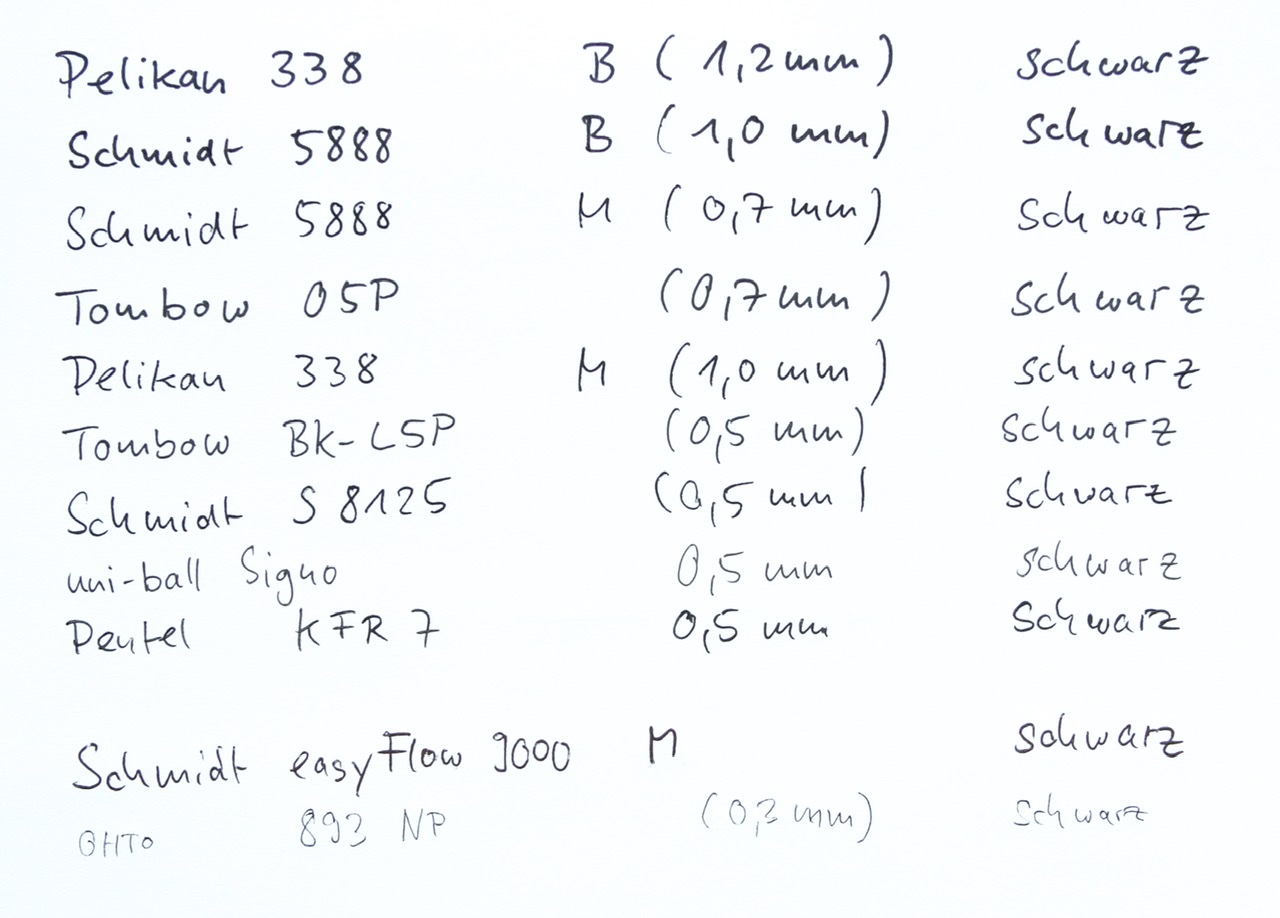 Pelikan 338 B (1,2mm) schwarz
Schmidt 5888 B (1,0 mm) schwarz
Schmidt 5888 M (0,7 mm) schwarz
Tombow 05P (0,7mm) schwarz
Pelikan 338 M (1,0 mm) schwarz
Tombow BK-L5P (0,5 mm) schwarz
Schmidt S 8125 (0,5 mm) schwarz
uni-ball Signo 0,5 mm schwarz
Pentel KFR 7 0,5 mm schwarz
Schmidt easyFlow 9000 M schwarz
OHTO 893 NP (0,3 mm) schwarz